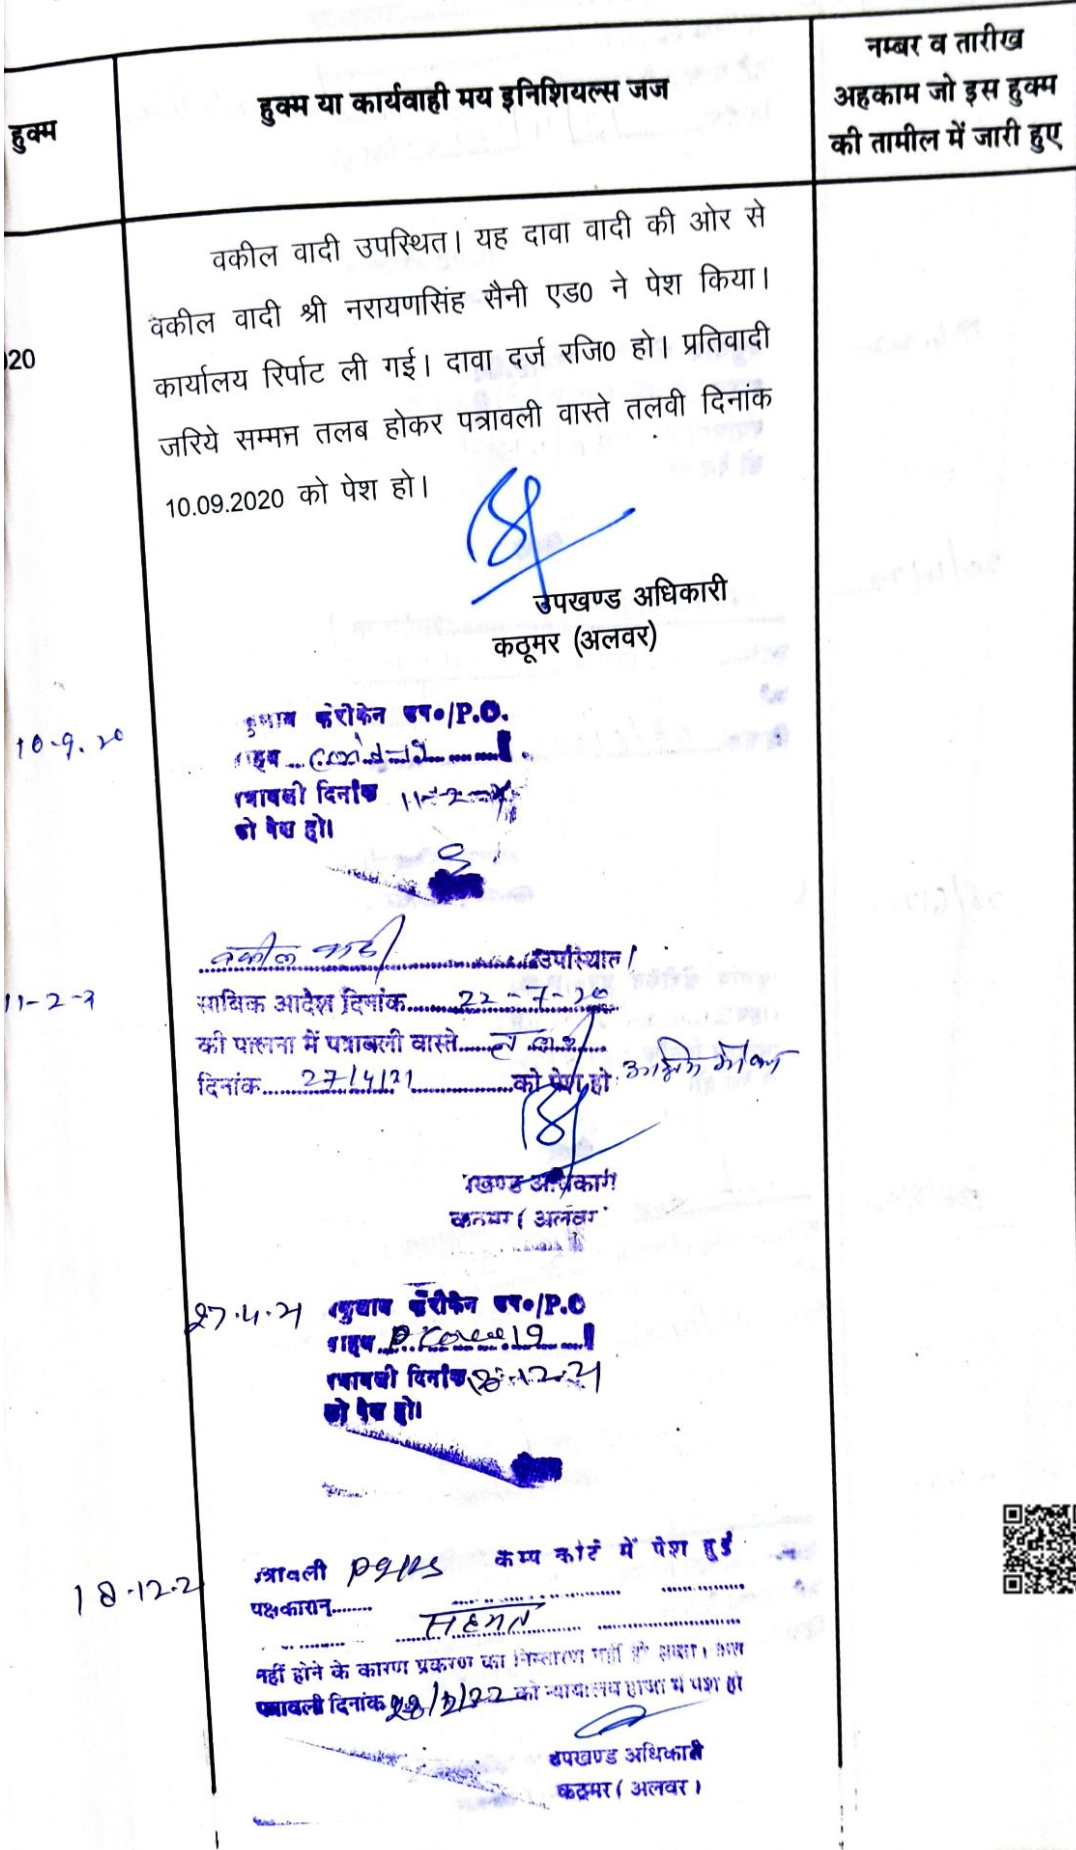 हुक्म
हुक्म या कार्यवाही मय इनिशियल्स जज
नम्बर व तारीख
अहकाम जो इस हुक्म
की तामील में जारी हुए
20
वकील वादी उपस्थित। यह दावा वादी की ओर से
वकील वादी श्री नरायणसिंह सैनी एड0 ने पेश किया।
कार्यालय रिर्पाट ली गई। दावा दर्ज रजि0 हो। प्रतिवादी
जरिये सम्मन तलब होकर पत्रावली वास्ते तलवी दिनांक
10.09.2020 को पेश हो।
उपखण्ड अधिकारी
कठूमर (अलवर)
10-9.20
/P.O.
दिनांक 11-2-
को पेश हो।
11-2-2
वकील वादी उपस्थित।
साबिक आदेश दिनांक 22-7-20
की पालना में पत्रावली वास्ते
दिनांक 27/4/21 को पेश हो
खण्ड अधिकारी
कठूमर ( अलवर
27.4.21
/P.O
दिनांक 18-12-21
को पेश हो।
18-12-2
कैम्प कोर्ट में पेश हुई
पक्षकारान
सहमत
नहीं होने के कारण प्रकरण का निस्तारण नहीं हो सका।
पत्रावली दिनांक को न्यायालय हाजा में पेश हो
उपखण्ड अधिकारी
कठूमर ( अलवर )